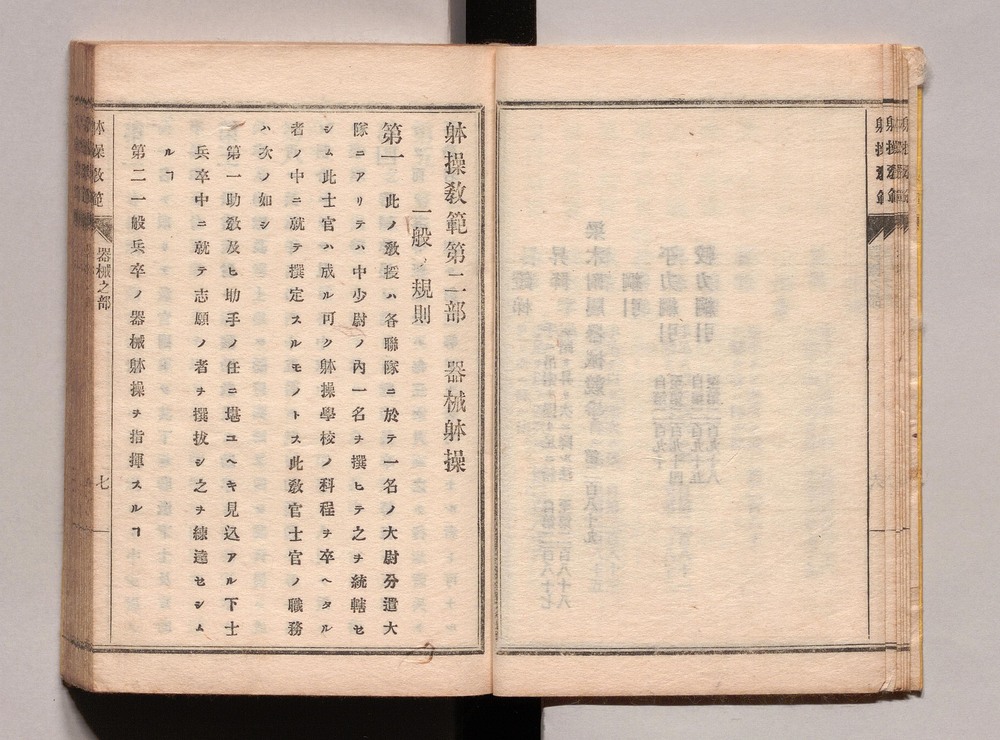 躰操教範第二部　器械躰操
一般ノ規則
第一　此ノ教授ハ各聯隊ニ於テ一名ノ大尉分遣大
隊ニアリテハ中少尉ノ內一名ヲ撰ヒテ之ヲ統轄セ
シム此士官ハ成ル可ク躰操學校ノ科程ヲ卒ヘタル
者ノ中ニ就テ撰定スルモノトス此教官士官ノ職務
ハ次ノ如シ
第一助教及ヒ助手ノ任ニ堪ユヘキ見込アル下士
兵卒中ニ就テ志願ノ者ヲ撰拔シ之ヲ練達セシム
ルヿ
第二一般兵卒ノ器械躰操ヲ指揮スルヿ
躰操教範
器械之部
七